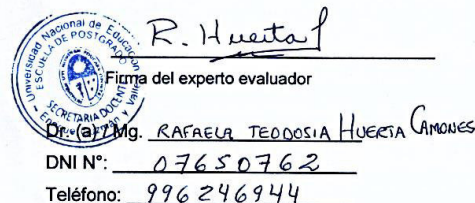 Universidad Nacional de Educación
ESCUELA DE POSTGRADO
SECRETARIA DOCENTE
Enrique Guzmán y Valle
R. Huerta
Firma del experto evaluador
Dr. (a) / Mg. RAFAELA TEODOSIA HUERTA CAMONES
DNI N°: 07650762
Teléfono: 996246944